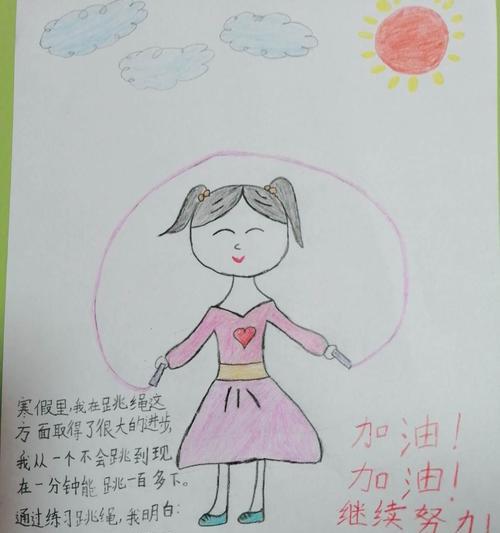 寒假里,我在跳绳这
方面取得了很大的进步,
我从一个不会跳到现
在一分钟能跳一百多下。
通过练习跳绳,我明白:
加油!
加油!
继续努力!